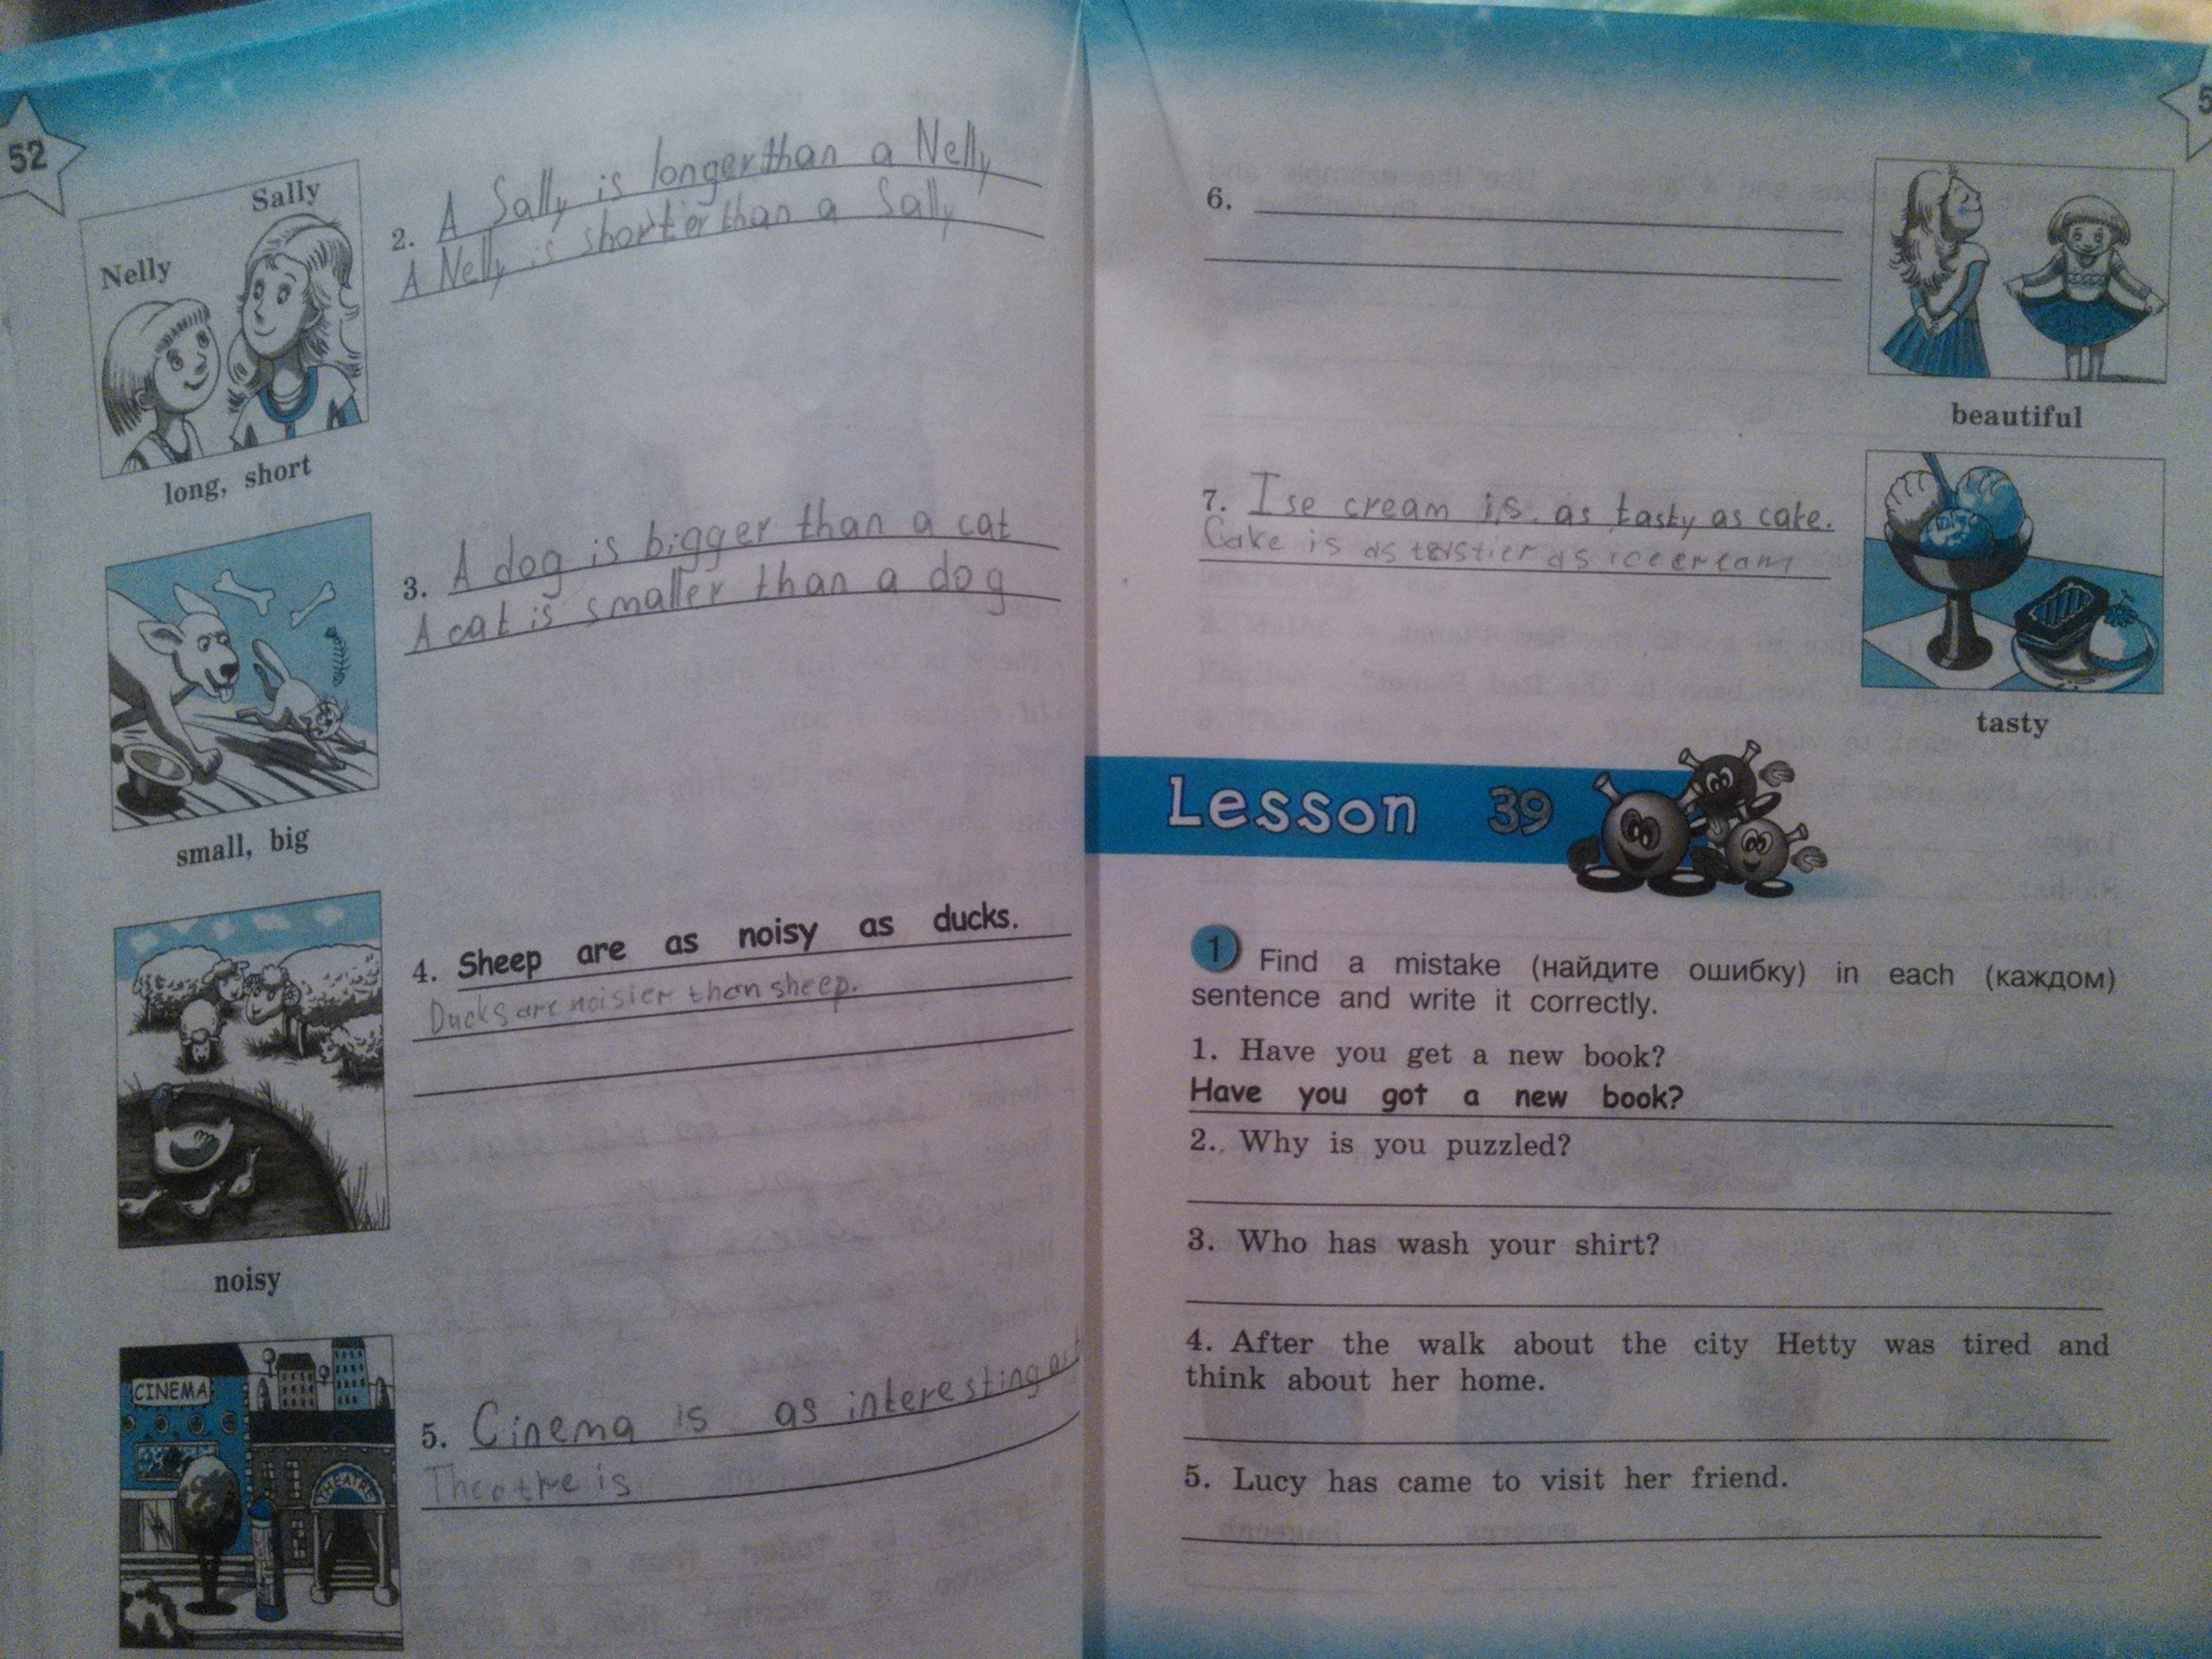 52
Sally
Nelly
long, short
2. A Sally is longer than a Nelly
A Nelly is shorter than a Sally
small, big
3. A dog is bigger than a cat
A cat is smaller than a dog
noisy
4. Sheep are as noisy as ducks.
Ducks are noisier than sheep.
CINEMA
THEATRE
5. Cinema is as interesting as
Theatre is
5
6.
beautiful
7. Ise cream is as tasty as cake.
Cake is as tastier as icecream
tasty
Lesson 39
1 Find a mistake (найдите ошибку) in each (каждом)
sentence and write it correctly.
1. Have you get a new book?
Have you got a new book?
2. Why is you puzzled?
3. Who has wash your shirt?
4. After the walk about the city Hetty was tired and
think about her home.
5. Lucy has came to visit her friend.